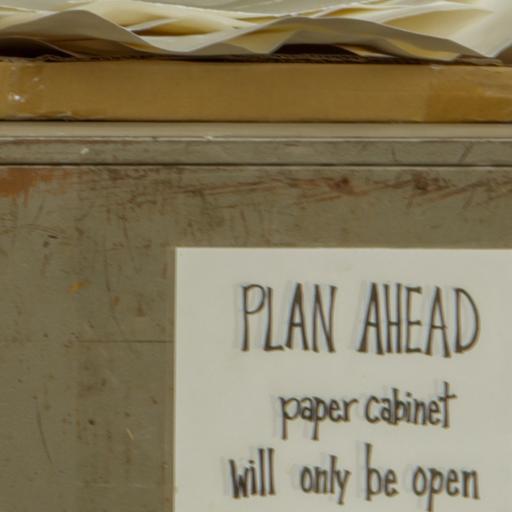 PLAN AHEAD
paper cabinet
will only be open